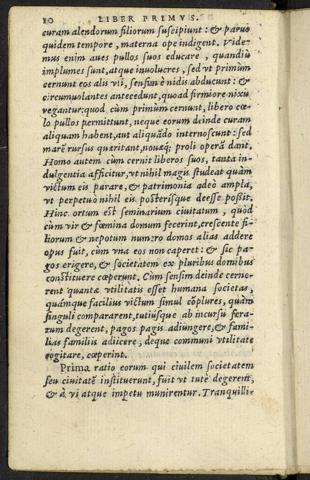 10 LIBER PRIMVS.
curam alendorum filiorum suscipiunt: & paruo
quidem tempore, materna ope indigent. Vide-
mus enim aues pullos suos educare, quandiu
implumes sunt, atque inuolucres, sed vt primùm
cernunt eos alis vti, sensim è nidis abducunt: &
circumuolantes antecedunt, quoad firmiore nixu
vegantur: quod cùm primùm cernunt, libero cœ-
lo pullos permittunt, neque eorum deinde curam
aliquam habent, aut aliquãdo internoscunt: sed
marē rursus queritant, nouæq́; proli operã dant.
Homo autem cùm cernit liberos suos, tanta in-
dulgentia afficitur, vt nihil magis studeat quàm
victum eis parare, & patrimonia adeò ampla,
vt perpetuò nihil eis posterisque deesse possit.
Hinc ortum est seminarium ciuitatum, quod
cùm vir & fœmina domum fecerint, crescente fi-
liorum & nepotum numero domos alias addere
opus fuit, cùm vna eos non caperet: & sic pa-
gos erigere, & societatem ex pluribus domibus
constituere cœperunt. Cùm sensim deinde cerne-
rent quanta vtilitatis esset humana societas,
quámque facilius victum simul cõplures, quàm
singuli compararent, tutiúsque ab incursu fera-
rum degerent, pagos pagis adiungere, & fami-
lias familiis adiicere, deque communi vtilitate
cogitare, cœperint.
Prima ratio eorum qui ciuilem societatem
seu ciuitatē instituerunt, fuit vt tutè degerent,
& à vi atque impetu munirentur. Tranquilli-